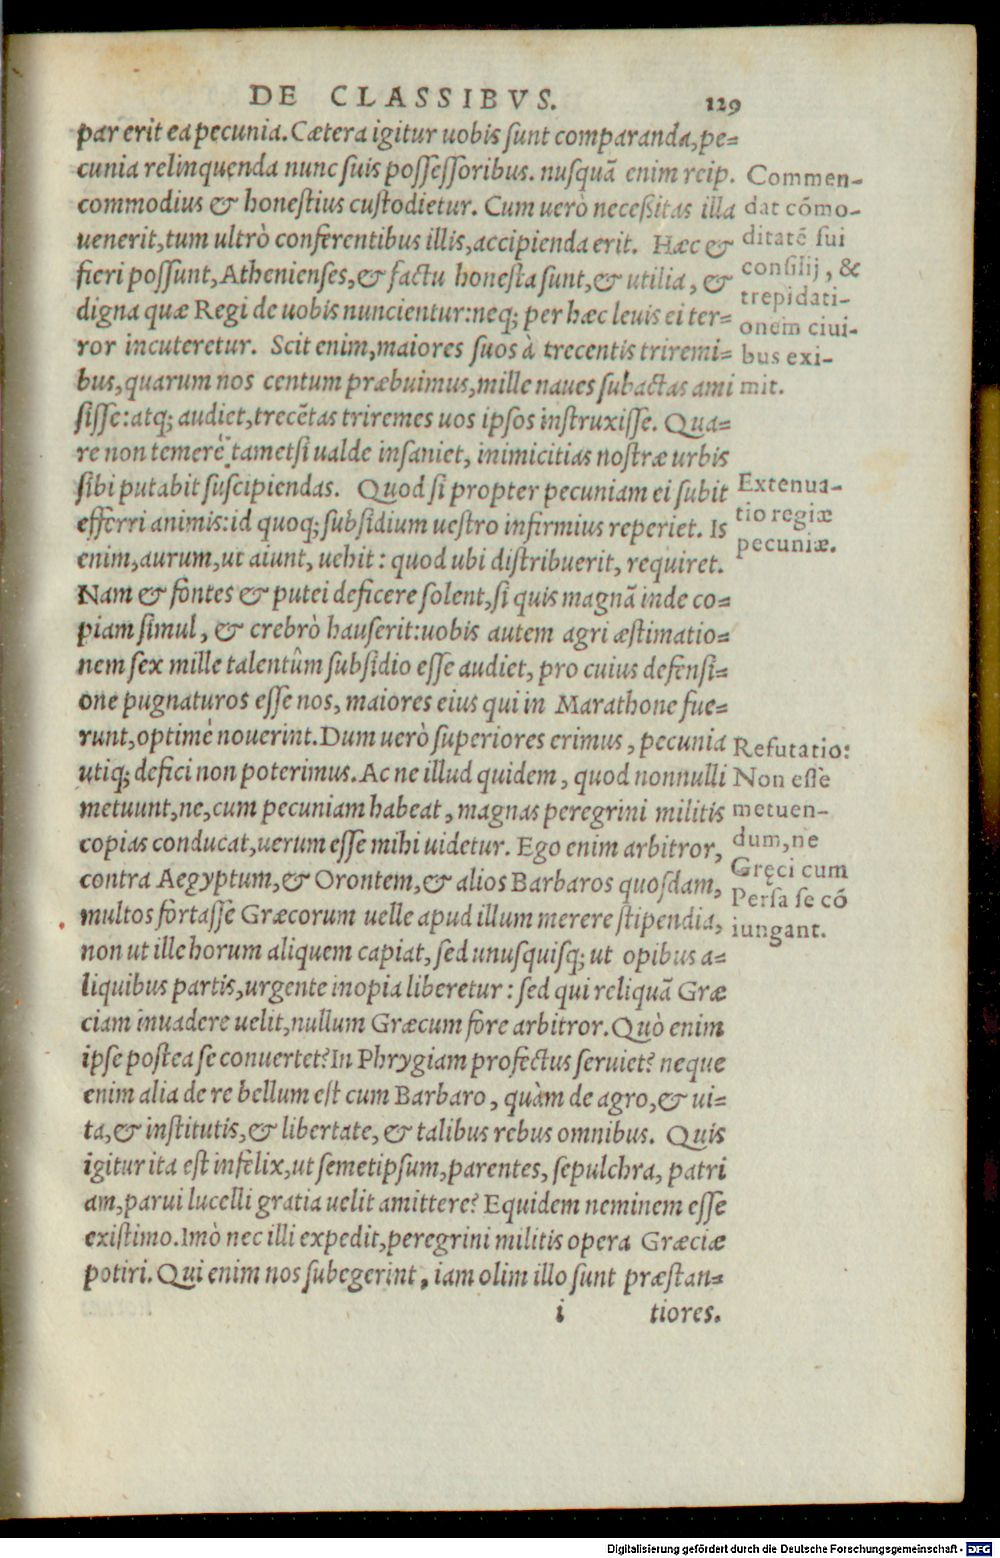 DE CLASSIBVS. 129
par erit ea pecunia. Cætera igitur uobis sunt comparanda, pe=
cunia relinquenda nunc suis possessoribus. nusquā enim reip.
commodius & honestius custodietur. Cum uerò necessitas illa
uenerit, tum ultrò conferentibus illis, accipienda erit. Hæc &
fieri possunt, Athenienses, & factu honesta sunt, & utilia, &
digna quæ Regi de uobis nuncientur: neq; per hæc leuis ei ter=
ror incuteretur. Scit enim, maiores suos à trecentis triremi=
bus, quarum nos centum præbuimus, mille naues subactas ami
sisse: atq; audiet, trecētas triremes uos ipsos instruxisse. Qua=
re non temerè, tametsi ualde insaniet, inimicitias nostræ urbis
sibi putabit suscipiendas. Quod si propter pecuniam ei subit
efferri animis: id quoq; subsidium uestro infirmius reperiet. Is
enim, aurum, ut aiunt, uehit: quod ubi distribuerit, requiret.
Nam & fontes & putei deficere solent, si quis magnā inde co=
piam simul, & crebrò hauserit: uobis autem agri æstimatio=
nem sex mille talentûm subsidio esse audiet, pro cuius defensi=
one pugnaturos esse nos, maiores eius qui in Marathone fue=
runt, optimè nouerint. Dum uerò superiores erimus, pecunia
utiq; defici non poterimus. Ac ne illud quidem, quod nonnulli
metuunt, ne, cum pecuniam habeat, magnas peregrini militis
copias conducat, uerum esse mihi uidetur. Ego enim arbitror,
contra Aegyptum, & Orontem, & alios Barbaros quosdam,
multos fortasse Græcorum uelle apud illum merere stipendia,
non ut ille horum aliquem capiat, sed unusquisq; ut opibus a=
liquibus partis, urgente inopia liberetur: sed qui reliquā Græ
ciam inuadere uelit, nullum Græcum fore arbitror. Quò enim
ipse postea se conuertet? In Phrygiam profectus seruiet? neque
enim alia de re bellum est cum Barbaro, quàm de agro, & ui=
ta, & institutis, & libertate, & talibus rebus omnibus. Quis
igitur ita est infelix, ut semetipsum, parentes, sepulchra, patri
am, parui lucelli gratia uelit amittere? Equidem neminem esse
existimo. Imò nec illi expedit, peregrini militis opera Græciæ
potiri. Qui enim nos subegerint, iam olim illo sunt præstan=
i tiores.
Commen-
dat cōmo-
ditatē sui
consilij, &
trepidati-
onem ciui-
bus exi-
mit.
Extenua-
tio regiæ
pecuniæ.
Refutatio:
Non esse
metuen-
dum, ne
Gręci cum
Persa se cō
iungant.
Digitalisierung gefördert durch die Deutsche Forschungsgemeinschaft - DFG